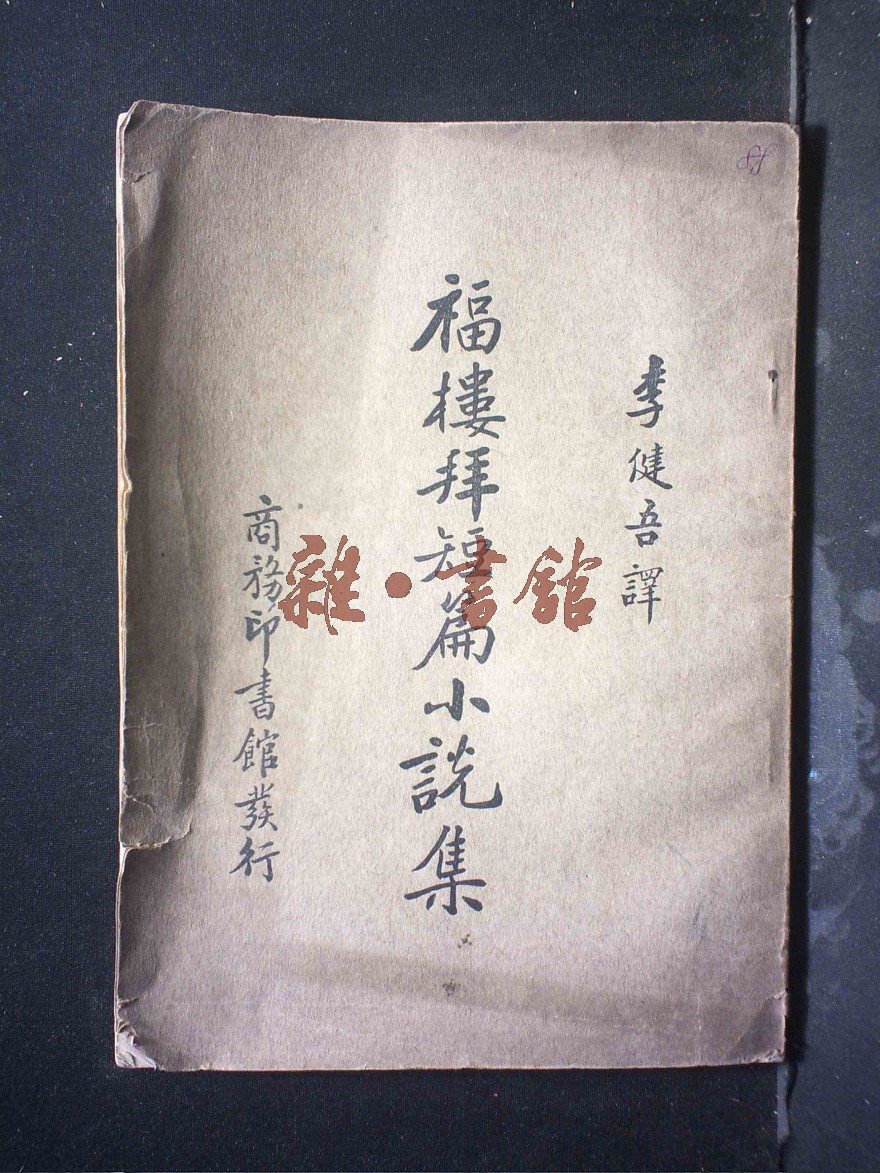 李健吾譯
福樓拜短篇小説集
商務印書館發行
雜·書館